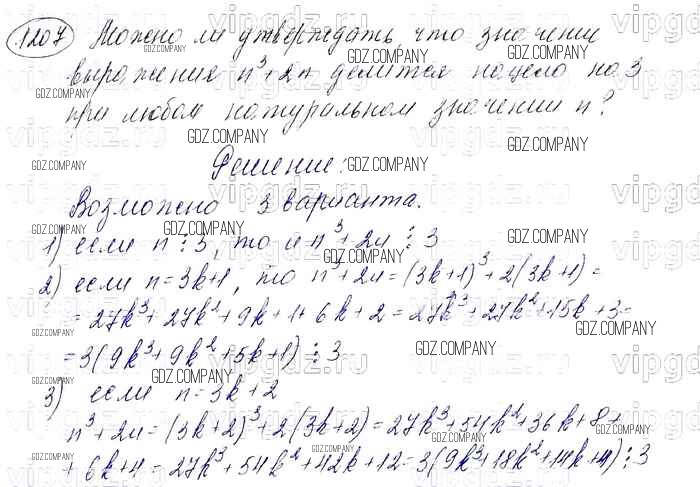 1207 Можно ли утверждать, что значение
выражения n³+2n делится нацело на 3
при любом натуральном значении n?
Решение:
Возможно 3 варианта.
1) если n⋮3, то и n³+2n⋮3
2) если n=3k+1, то n³+2n=(3k+1)³+2(3k+1)=
=27k³+27k²+9k+1+6k+2=27k³+27k²+15k+3=
=3(9k³+9k²+5k+1)⋮3
3) если n=3k+2
n³+2n=(3k+2)³+2(3k+2)=27k³+54k²+36k+8+
+6k+4=27k³+54k²+42k+12=3(9k³+18k²+14k+4)⋮3
GDZ.COMPANY
vipgdz.ru